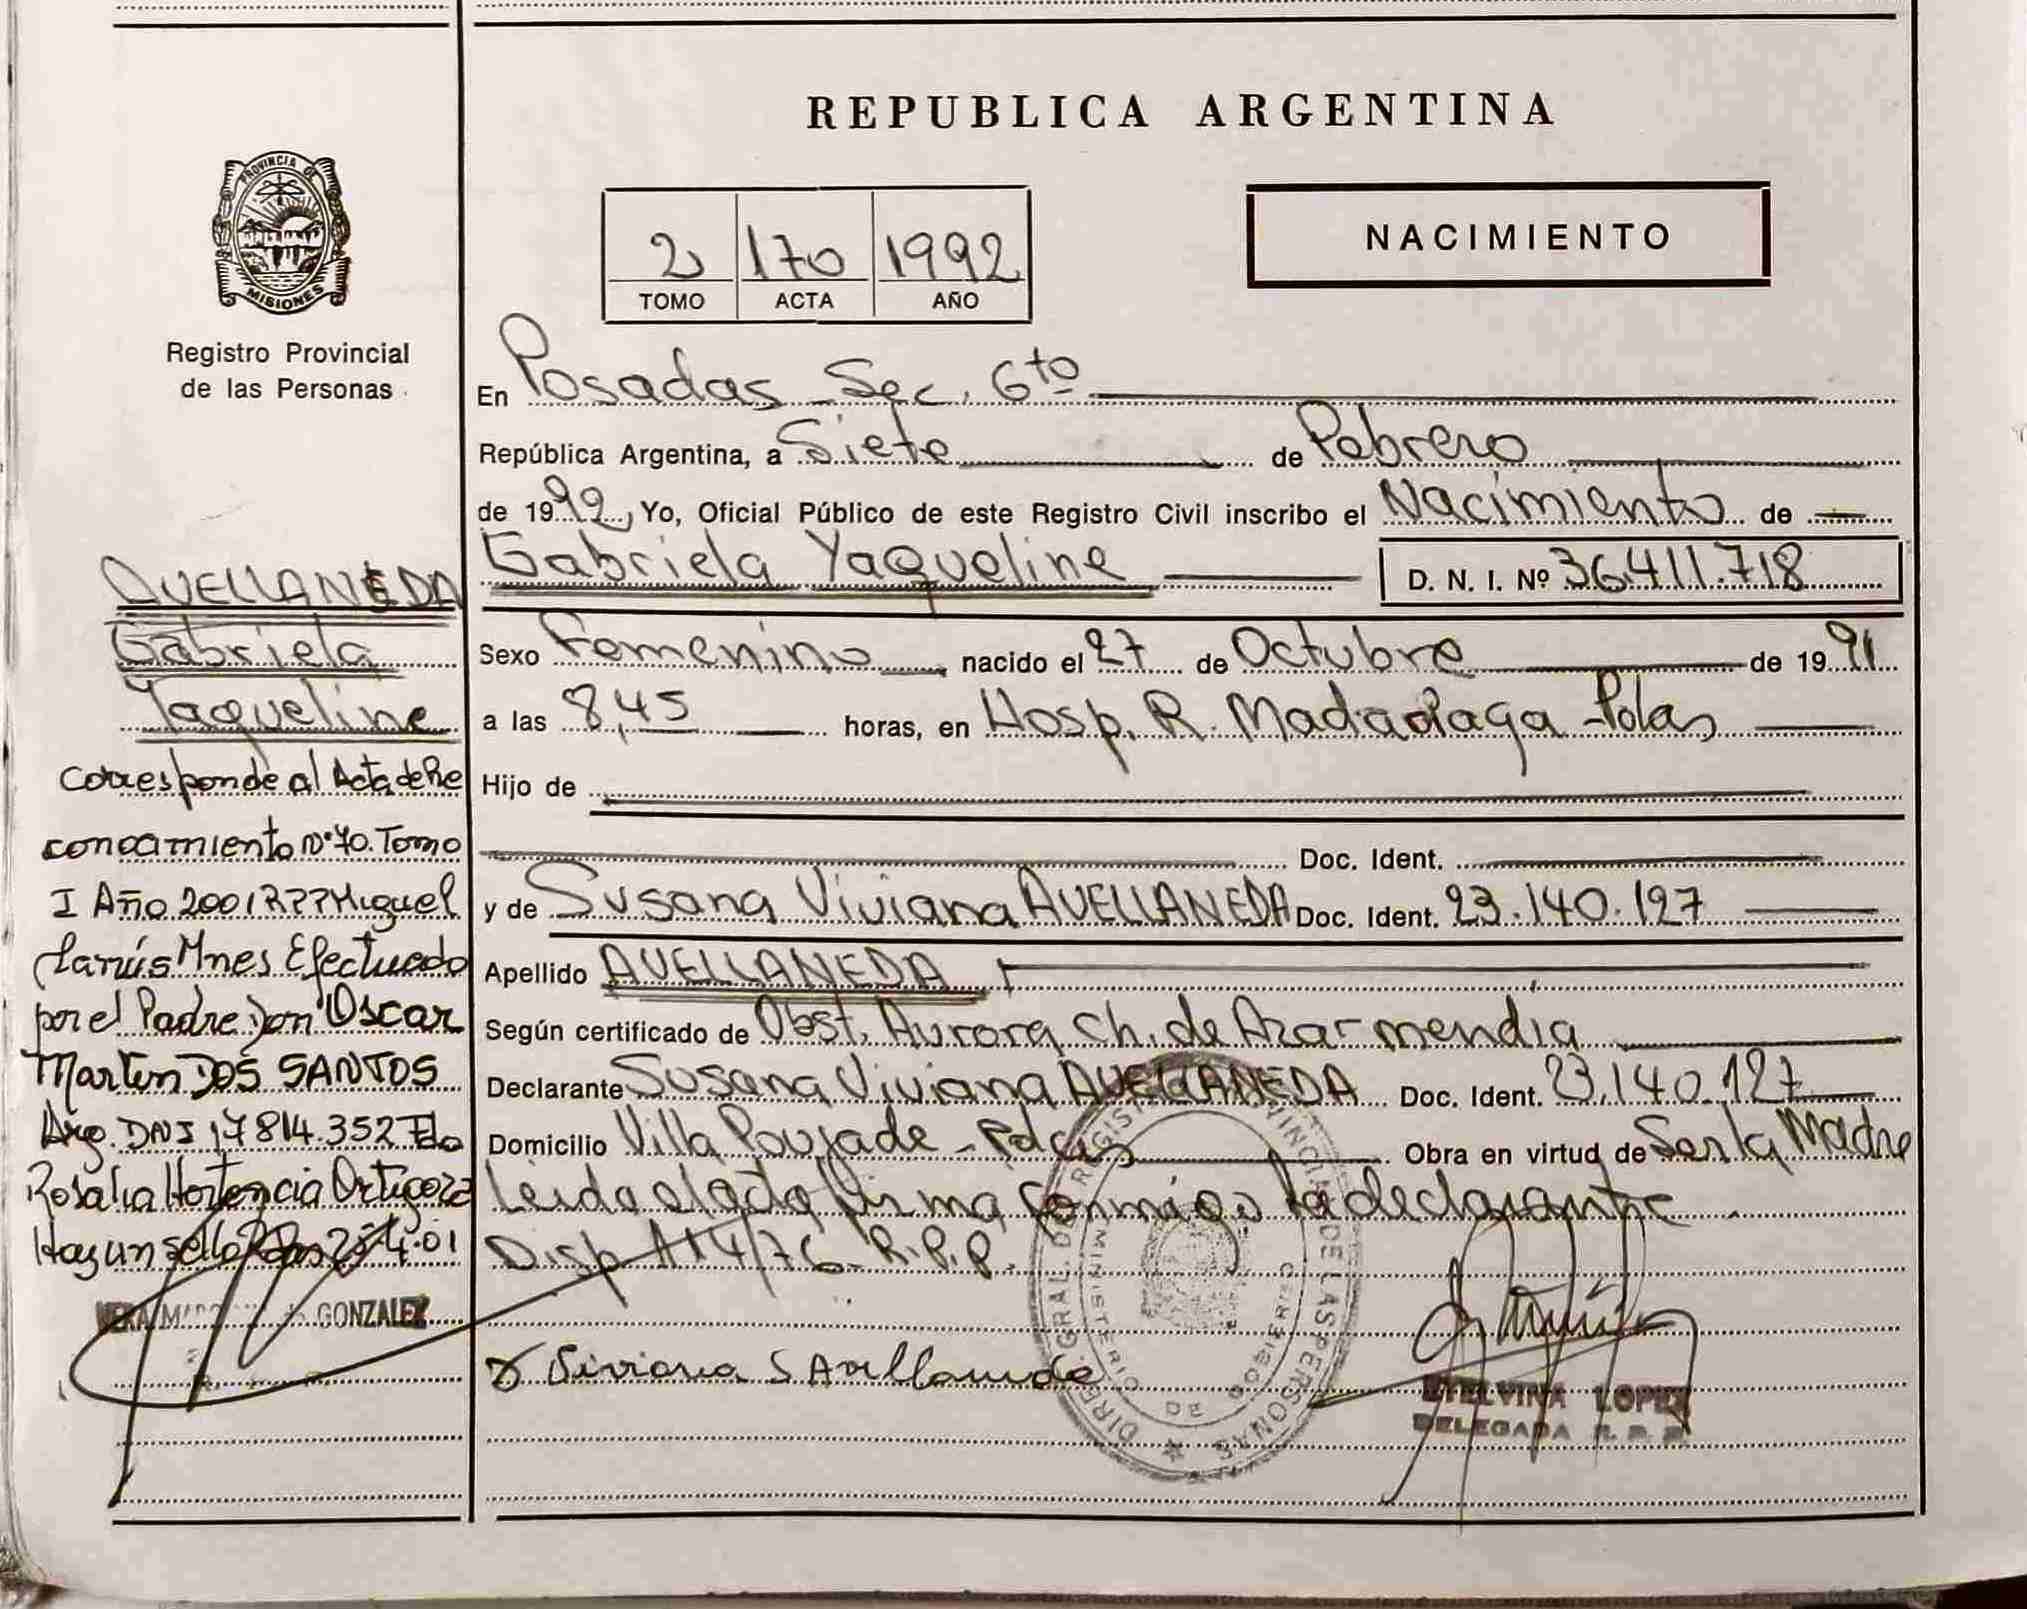 REPUBLICA ARGENTINA
PROVINCIA DE
MISIONES
Registro Provincial
de las Personas
2 170 1992
TOMO ACTA AÑO
NACIMIENTO
En Posadas Sec. 6to
República Argentina, a Siete de Febrero
de 1992, Yo, Oficial Público de este Registro Civil inscribo el Nacimiento de
Gabriela Yaqueline D. N. I. Nº 36.411.718
Sexo Femenino nacido el 27 de Octubre de 1991
a las 8,45 horas, en Hosp. R. Madariaga - Pdas
Hijo de
Doc. Ident.
y de Susana Viviana AVELLANEDA Doc. Ident. 23.140.127
Apellido AVELLANEDA
Según certificado de Obst. Aurora Ch. de Azarmendia
Declarante Susana Viviana AVELLANEDA Doc. Ident. 23.140.127
Domicilio Villa Poujade - Pdas Obra en virtud de Ser la Madre
Leida el acta firma conmigo la declarante.
Disp A14/76 R.P.P.
Viviana S Avellaneda
DIREC. GRAL. DEL REGISTRO PROVINCIAL DE LAS PERSONAS
MINISTERIO DE GOBIERNO
ETELVINA LOPEZ
DELEGADA R. P. P.
AVELLANEDA
Gabriela
Yaqueline
Corresponde al Acta de Re
conocimiento Nº 70. Tomo
I Año 2001 R.P.P Miguel
Lanús Mnes Efectuado
por el Padre Don Oscar
Martin DOS SANTOS
Arg. DNI 17814.352 Fdo
Rosalia Hortencia Ortigoza
Hay un sello Pdas 25-4-01
GONZALEZ